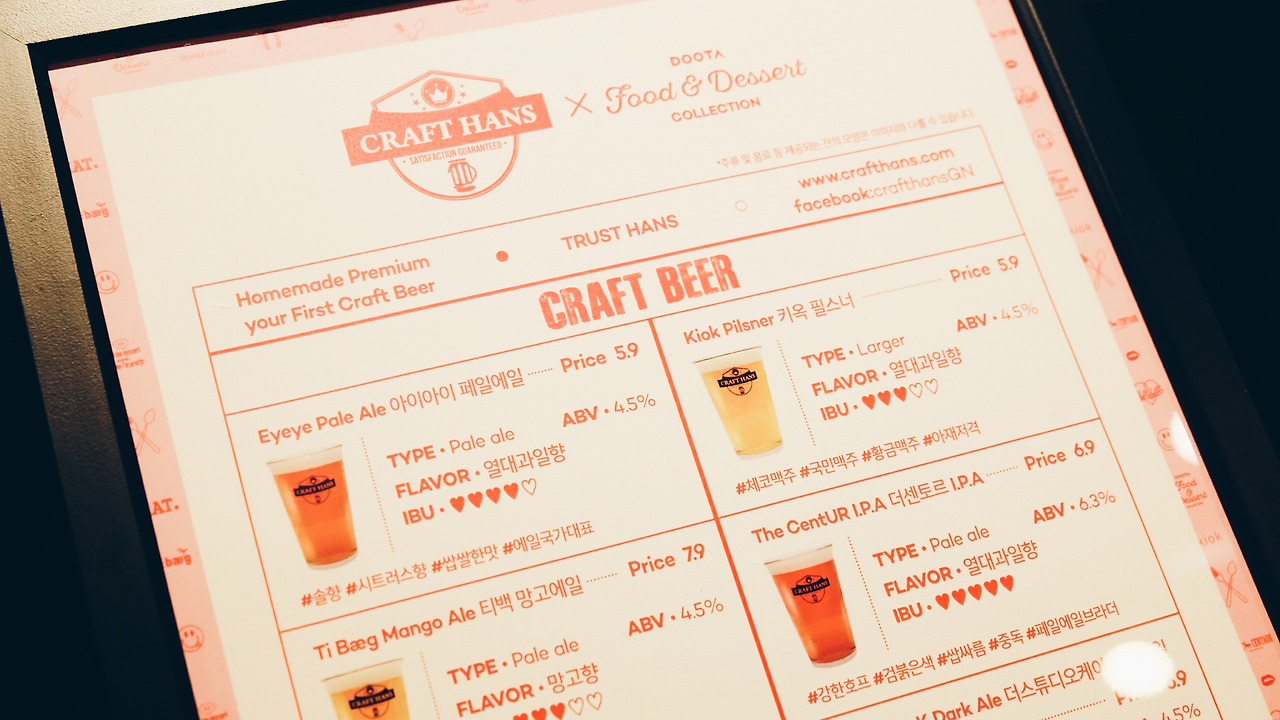 CRAFT HANS
• SATISFACTION QUARANTEED •
×
DOOTA
Food & Dessert
COLLECTION
*주류 및 음료 등 제공되는 잔의 모양은 이미지와 다를 수 있습니다.
Homemade Premium
your First Craft Beer
TRUST HANS
www.crafthans.com
facebook:crafthansGN
CRAFT BEER
Eyeye Pale Ale 아이아이 페일에일 Price 5.9
ABV • 4.5%
TYPE • Pale ale
FLAVOR • 열대과일향
IBU • ♥♥♥♥♡
CRAFT HANS
#솔향 #시트러스향 #쌉쌀한맛 #에일국가대표
Kiok Pilsner 키옥 필스너 Price 5.9
ABV • 4.5%
TYPE • Larger
FLAVOR • 열대과일향
IBU • ♥♥♥♡♡
CRAFT HANS
#체코맥주 #국민맥주 #황금맥주 #아재저격
Ti Bæg Mango Ale 티백 망고에일 Price 7.9
ABV • 4.5%
TYPE • Pale ale
FLAVOR • 망고향
♥♥♥♡♡
CRAFT HANS
The CentUR I.P.A 더센토르 I.P.A Price 6.9
ABV • 6.3%
TYPE • Pale ale
FLAVOR • 열대과일향
IBU • ♥♥♥♥♥
CRAFT HANS
#강한호프 #검붉은색 #쌉싸름 #중독 #페일에일브라더
K Dark Ale 더스튜디오케이
4.5%
AT.
bæg
AT.
bæg
Food & Dessert
kiok
Food & Dessert
kiok